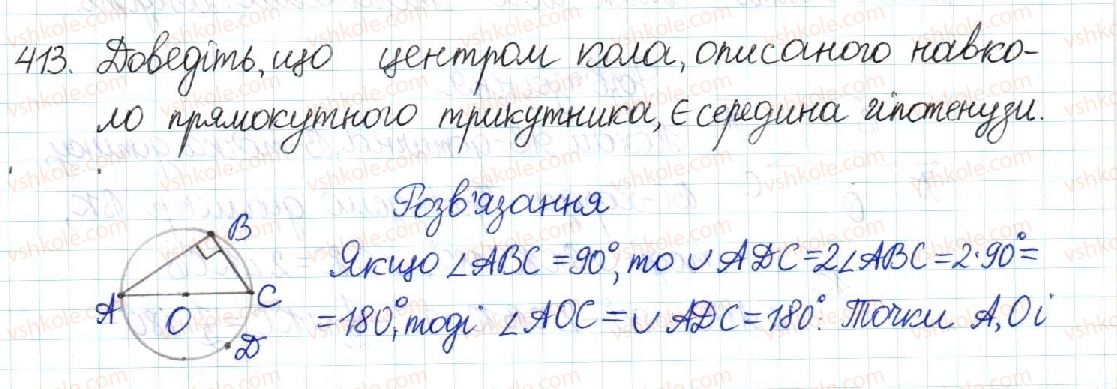 413. Доведіть, що центром кола, описаного навко-
ло прямокутного трикутника, є середина гіпотенузи.
Розв'язання
Якщо ∠ABC = 90°, то ∪ADC = 2∠ABC = 2·90° =
= 180°, тоді ∠AOC = ∪ADC = 180°. Точки A, O і
B
A
O
C
D
vshkole.com